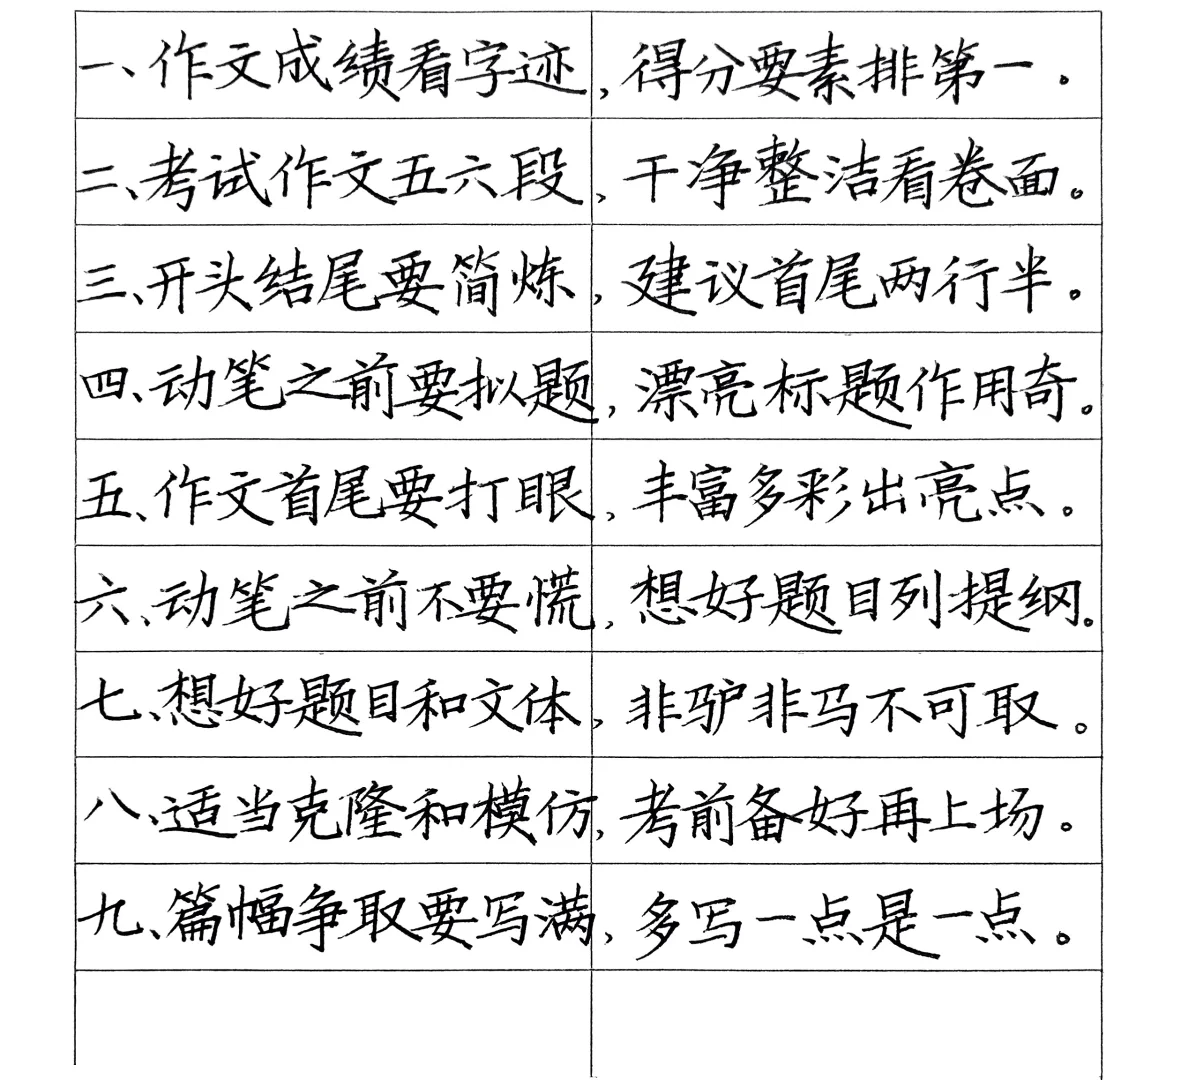 一、作文成绩看字迹，得分要素排第一。
二、考试作文五六段，干净整洁看卷面。
三、开头结尾要简炼，建议首尾两行半。
四、动笔之前要拟题，漂亮标题作用奇。
五、作文首尾要打眼，丰富多彩出亮点。
六、动笔之前不要慌，想好题目列提纲。
七、想好题目和文体，非驴非马不可取。
八、适当克隆和模仿，考前备好再上场。
九、篇幅争取要写满，多写一点是一点。